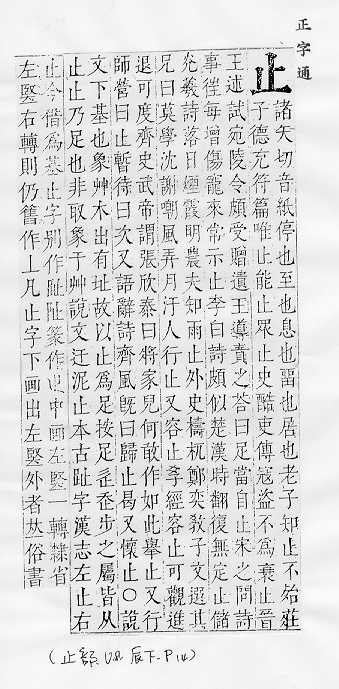 正字通
止
諸矢切音紙停也至也息也畱也居也老子知止不殆莊
子德充符篇唯止能止眾止史酷吏傳寇盜不爲衰止晉
王述試宛陵令頗受贈遺王導責之荅曰足當自止宋之問詩
事徃每增傷寵來常示止李白詩頗似楚漢時翻復無定止儲
光羲詩落日煙霞明農夫知雨止外史檮杌鄭奕敎子文選其
兄曰莫學沈謝嘲風弄月汙人行止又容止孝經容止可觀進
退可度齊史武帝謂張欣泰曰將家兒何敢作如此舉止又行
師營曰止暫待曰次又語辭詩齊風旣曰歸止曷又懷止○說
文下基也象艸木出有址故以止爲足按足步之屬皆从
止止乃足也非取象于艸說文迂泥止本古趾字漢志左止右
止今借爲基止字别作趾阯篆作中画左竪一轉隸省
左竪右轉則仍舊作丄凡止字下画出左竪外者𠀤俗書
(止 辰下-P14)